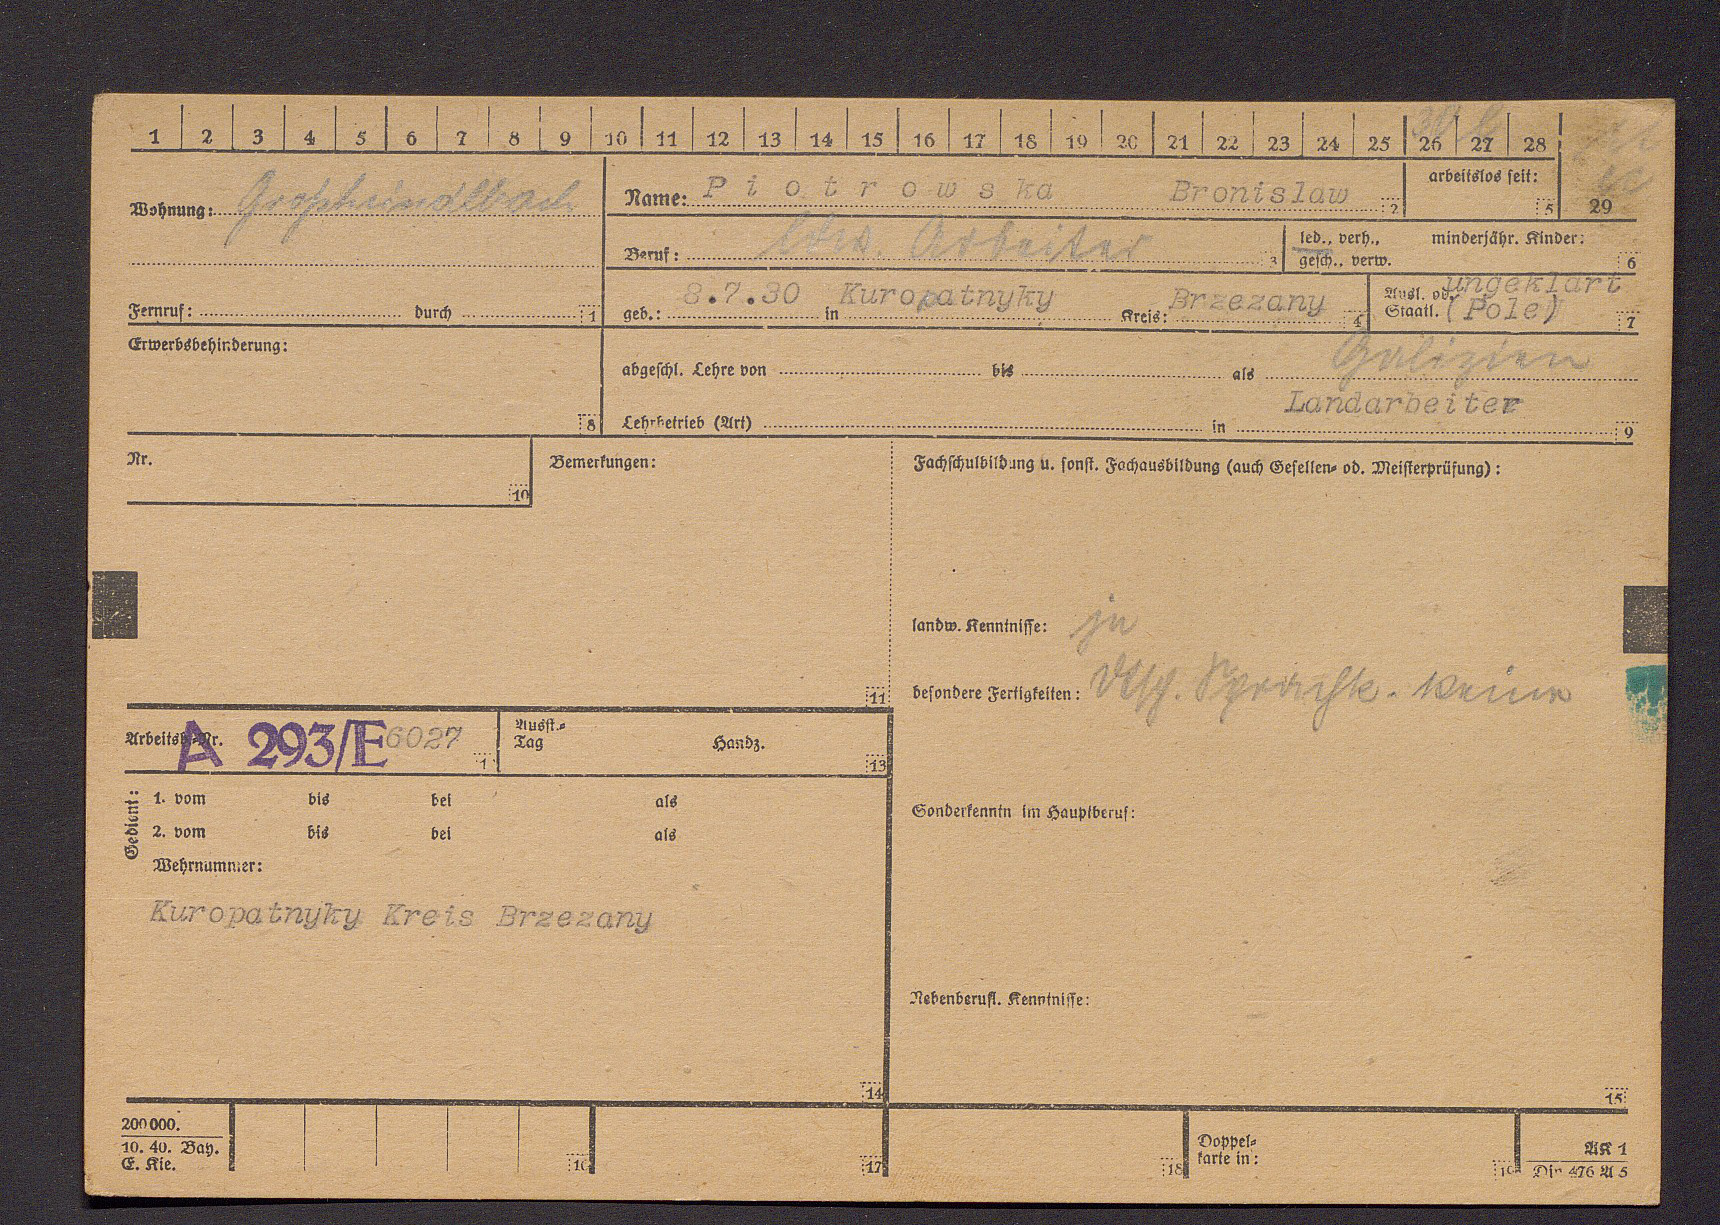 1 2 3 4 5 6 7 8 9 10 11 12 13 14 15 16 17 18 19 20 21 22 23 24 25 26 27 28
29
Wohnung: Großhündlbach
Name: Piotrowska Bronislaw 2
arbeitslos seit: 5
Beruf: ldw. Arbeiter 3
led., verh., gesch., verw.
minderjähr. Kinder: 6
Fernruf: durch 1
geb.: 8.7.30 in Kuropatnyky Kreis: Brzezany 4
Ausl. od. Staatl. ungeklärt (Pole) 7
Erwerbsbehinderung: 8
abgeschl. Lehre von bis als Galizien
Landarbeiter
Lehrbetrieb (Art) in 9
Nr. 10
Bemerkungen: 11
Fachschulbildung u. sonst. Fachausbildung (auch Gesellen- od. Meisterprüfung):
landw. Kenntnisse: ja
besondere Fertigkeiten: Dtsch. Sprachk. keine
Arbeitsb.-Nr. A 293/E 6027
Ausst.-Tag Handz. 13
Gedient:
1. vom bis bei als
2. vom bis bei als
Wehrnummer:
Kuropatnyky Kreis Brzezany
14
Sonderkenntn im Hauptberuf:
Nebenberufl. Kenntnisse:
15
200000.
10. 40. Bay.
E. Kie.
16 17 18
Doppel-
karte in: 19
AK 1
Din 476 A 5